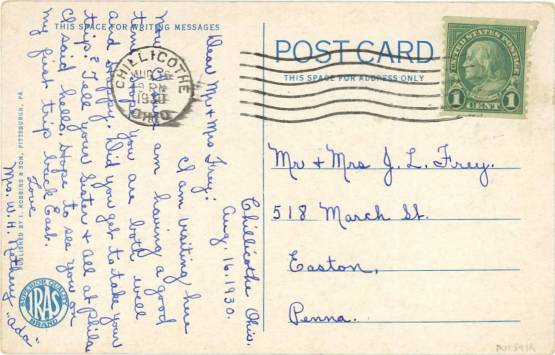 THIS SPACE FOR WRITING MESSAGES
POST CARD
THIS SPACE FOR ADDRESS ONLY
UNITED STATES POSTAGE
1 CENT 1
CHILLICOTHE
AUG
PM
1930
OHIO
Chillicothe Ohio.
Aug. 16. 1930.
Dear Mr + Mrs Frey:
I am visiting here
now. Am having a good
time. Hope you are both well
and happy. Did you get to take your
trip? Tell your sister + all at Phila
I said hello. Hope to see you on
my first trip back East.
Love
Mrs. W. H. "Ada"
Mr + Mrs J. L. Frey.
518 March St.
Easton,
Penna.
PUBLISHED BY I. ROBBINS & SON, PITTSBURGH, PA.
SUPERIOR QUALITY
IRAS
BRAND